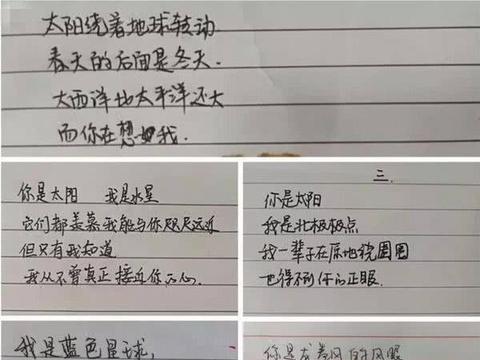 太阳绕着地球转动
春天的后面是冬天.
大西洋比太平洋还大
而你在想如我.
你是太阳 我是水星
它们都羡慕我能与你咫尺远近
但只有我知道
我从不曾真正接近你的心.
三.
你是太阳
我是北极极点
我一辈子在原地绕圈圈
也得不到你的正眼.
我是蓝色星球,
你是龙卷风的风眼